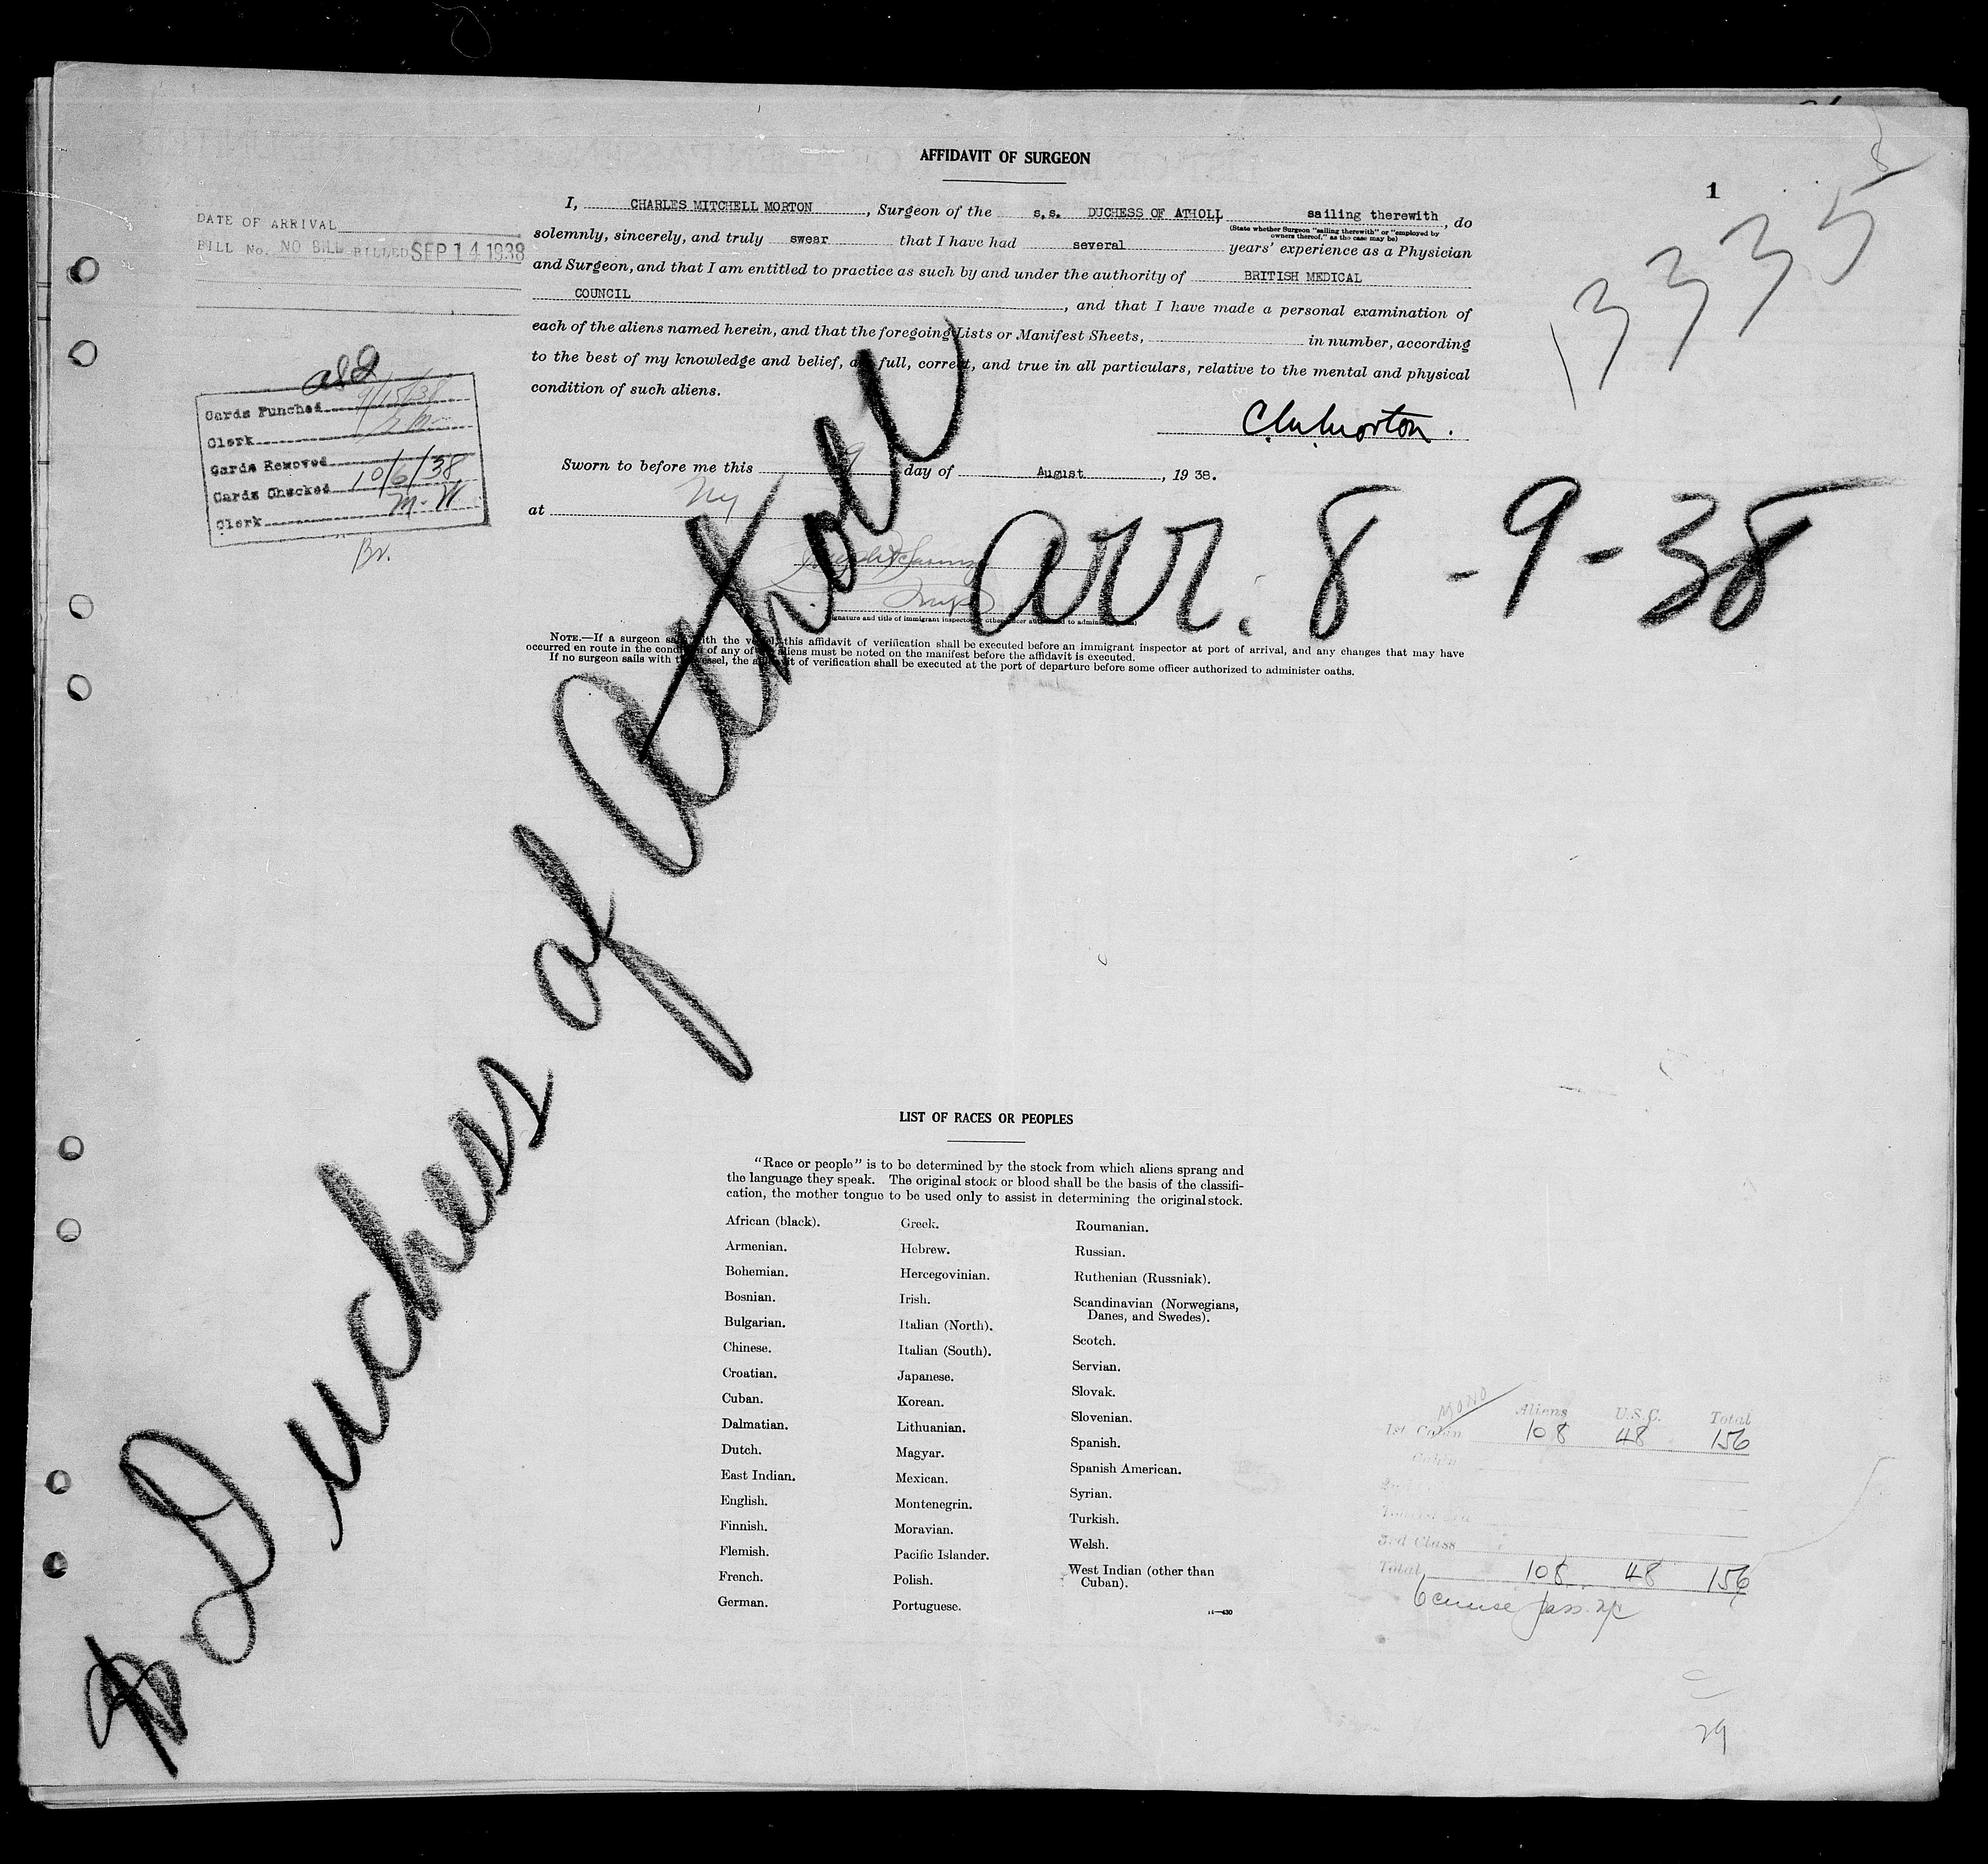 AFFIDAVIT OF SURGEON
1
13335
DATE OF ARRIVAL
BILL No. NO BILL BILLED SEP 14 1938
I, CHARLES MITCHELL MORTON, Surgeon of the s.s. DUCHESS OF ATHOLL sailing therewith, do
(State whether Surgeon "sailing therewith" or "employed by
owners thereof," as the case may be)
solemnly, sincerely, and truly swear that I have had several years' experience as a Physician
and Surgeon, and that I am entitled to practice as such by and under the authority of BRITISH MEDICAL
COUNCIL, and that I have made a personal examination of
each of the aliens named herein, and that the foregoing Lists or Manifest Sheets, in number, according
to the best of my knowledge and belief, are full, correct, and true in all particulars, relative to the mental and physical
condition of such aliens.
C.M. Morton.
Cards Punched 9/15/38
Clerk
Cards Removed
Cards Checked 10/6/38
Clerk M.W
Br.
Sworn to before me this 9 day of August, 19 38.
at NY
arr. 8-9-38
Duchess of Atholl
(Signature and title of immigrant inspector or other officer authorized to administer oaths)
NOTE.—If a surgeon sails with the vessel, this affidavit of verification shall be executed before an immigrant inspector at port of arrival, and any changes that may have
occurred en route in the condition of any of the aliens must be noted on the manifest before the affidavit is executed.
If no surgeon sails with the vessel, the affidavit of verification shall be executed at the port of departure before some officer authorized to administer oaths.
LIST OF RACES OR PEOPLES
"Race or people" is to be determined by the stock from which aliens sprang and
the language they speak. The original stock or blood shall be the basis of the classifi-
cation, the mother tongue to be used only to assist in determining the original stock.
African (black).
Armenian.
Bohemian.
Bosnian.
Bulgarian.
Chinese.
Croatian.
Cuban.
Dalmatian.
Dutch.
East Indian.
English.
Finnish.
Flemish.
French.
German.
Greek.
Hebrew.
Hercegovinian.
Irish.
Italian (North).
Italian (South).
Japanese.
Korean.
Lithuanian.
Magyar.
Mexican.
Montenegrin.
Moravian.
Pacific Islander.
Polish.
Portuguese.
Roumanian.
Russian.
Ruthenian (Russniak).
Scandinavian (Norwegians,
Danes, and Swedes).
Scotch.
Servian.
Slovak.
Slovenian.
Spanish.
Spanish American.
Syrian.
Turkish.
Welsh.
West Indian (other than
Cuban).
MONO
Aliens U.S.C. Total
1st Cabin 108 48 156
Cabin
3rd Class
Total 108 48 156
6 cruise pass.
29